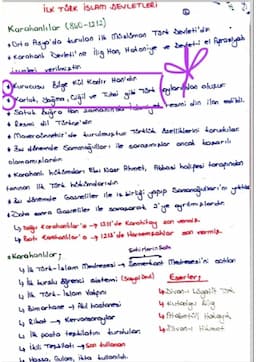 İLK TÜRK İSLAM DEVLETLERİ
Karahanlılar (840-1212)
• Orta Asya'da kurulan ilk Müslüman Türk Devleti'dir.
• Karahanlı Devleti'ne İlig Han, Hakaniye ve Devleti el Afrasiyab
isimleri verilmiştir.
• Kurucusu Bilge Kül Kadir Han'dır.
• Karluk, Yağma, Çiğil ve Tuhsi gibi Türk boylarından oluşur.
• Satuk Buğra Han zamanında İslamiyet resmi din ilan edildi.
• Resmi dil Türkçe'dir.
• Maveraünnehir'de kurulmuştur Türklük özelliklerini korumuşlar
• Bu dönemde Samanoğulları ile savaşmışlar ancak başarılı
olamamışlardır.
• Karahanlı hükümdarı Ebu Nasr Ahmet, Abbasi halifesi tarafından
tanınan ilk Türk hükümdarıdır.
• Bu dönemde Gazneliler ile iş birliği yapıp Samanoğulları'nı yıktılar
• Daha sonra Gazneliler ile savaşarak 2'ye ayrılmışlardır.
↳ Doğu Karahanlılar'a → 1211'de Karahitay son vermiş.
↳ Batı Karahanlılar'a → 1212'de Harzemşahlar son vermiş.
*Karahanlılar;
↳ İlk Türk-İslam Medresesi → Semerkant Medresesi'ni açtılar
↳ İlk burslu öğrenci sistemi
↳ İlk Türk-İslam Vakfı
↳ Bimarhane → Akıl hastanesi
↳ Ribat → Kervansaraylar
↳ İlk posta teşkilatını kurdular.
↳ İkili Teşkilat → Son kullanan
↳ Hassa, Gulam, ikta kullanıldı.
Eserler;
↳ Divan-ı Lügati't Türk
↳ Kutadgu Bilig
↳ Atabetül Hakayık
↳ Divan-ı Hikmet